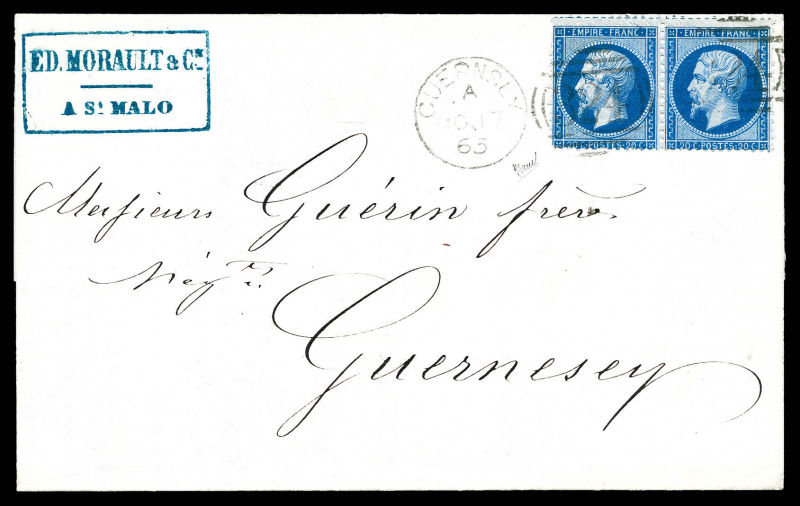 ED. MORAULT & Cie
A St MALO
GUERNSEY
A
65
EMPIRE FRANC
20 C POSTES 20 C
EMPIRE FRANC
20 C POSTES 20 C
Messieurs Guérin frères
Négts
Guernesey